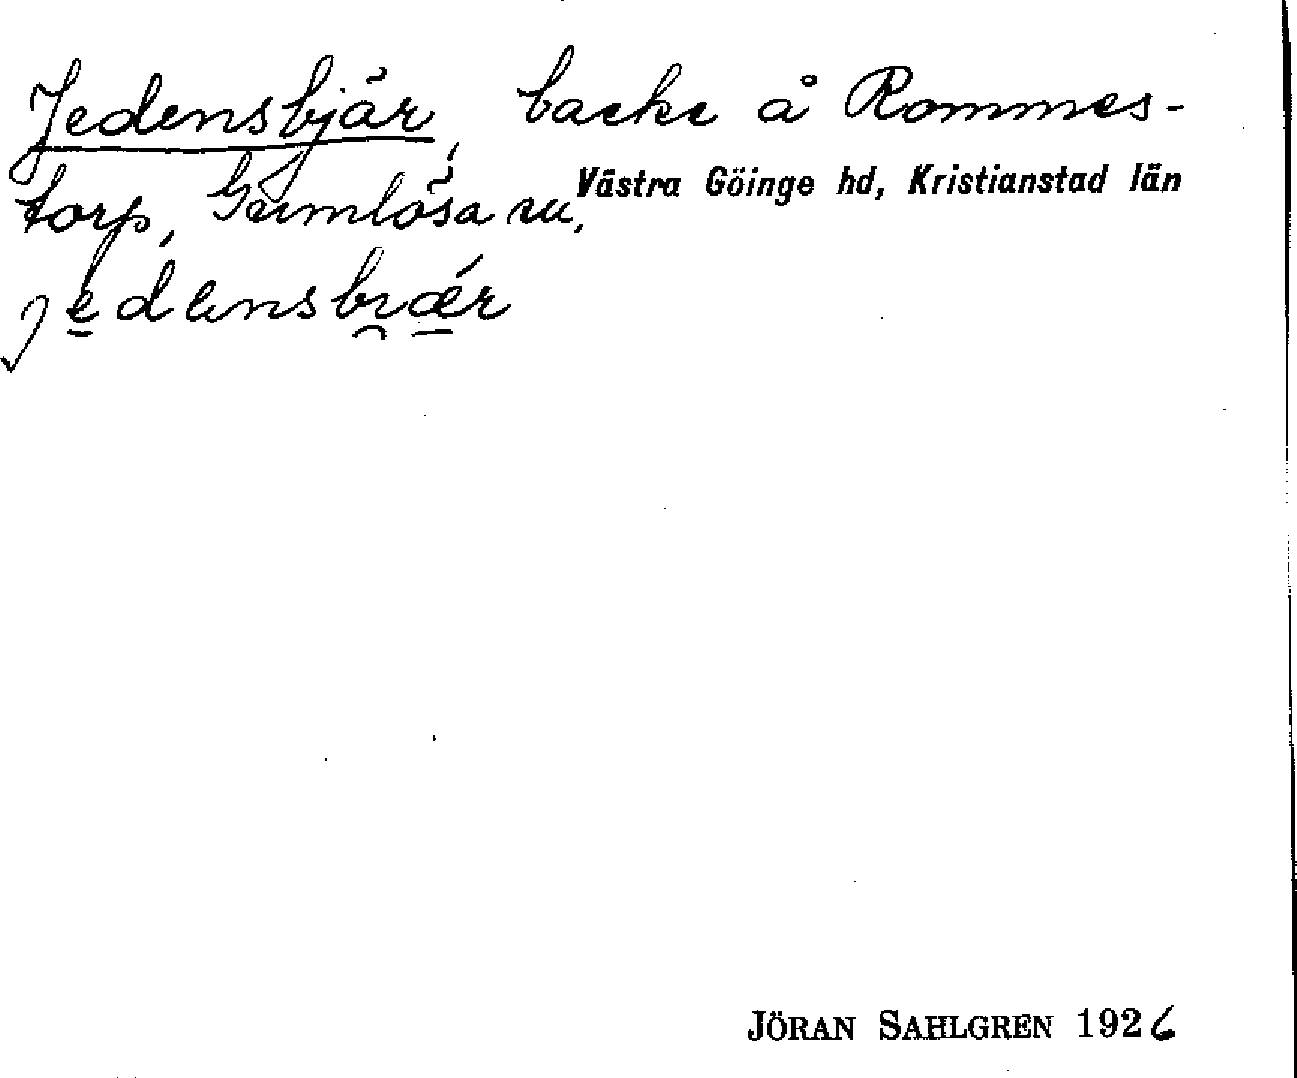 Jedensbjär, backe å Rommes-
torp, Gumlösa sn,
Västra Göinge hd, Kristianstad län
jedensbiǽr
JÖRAN SAHLGREN 1926